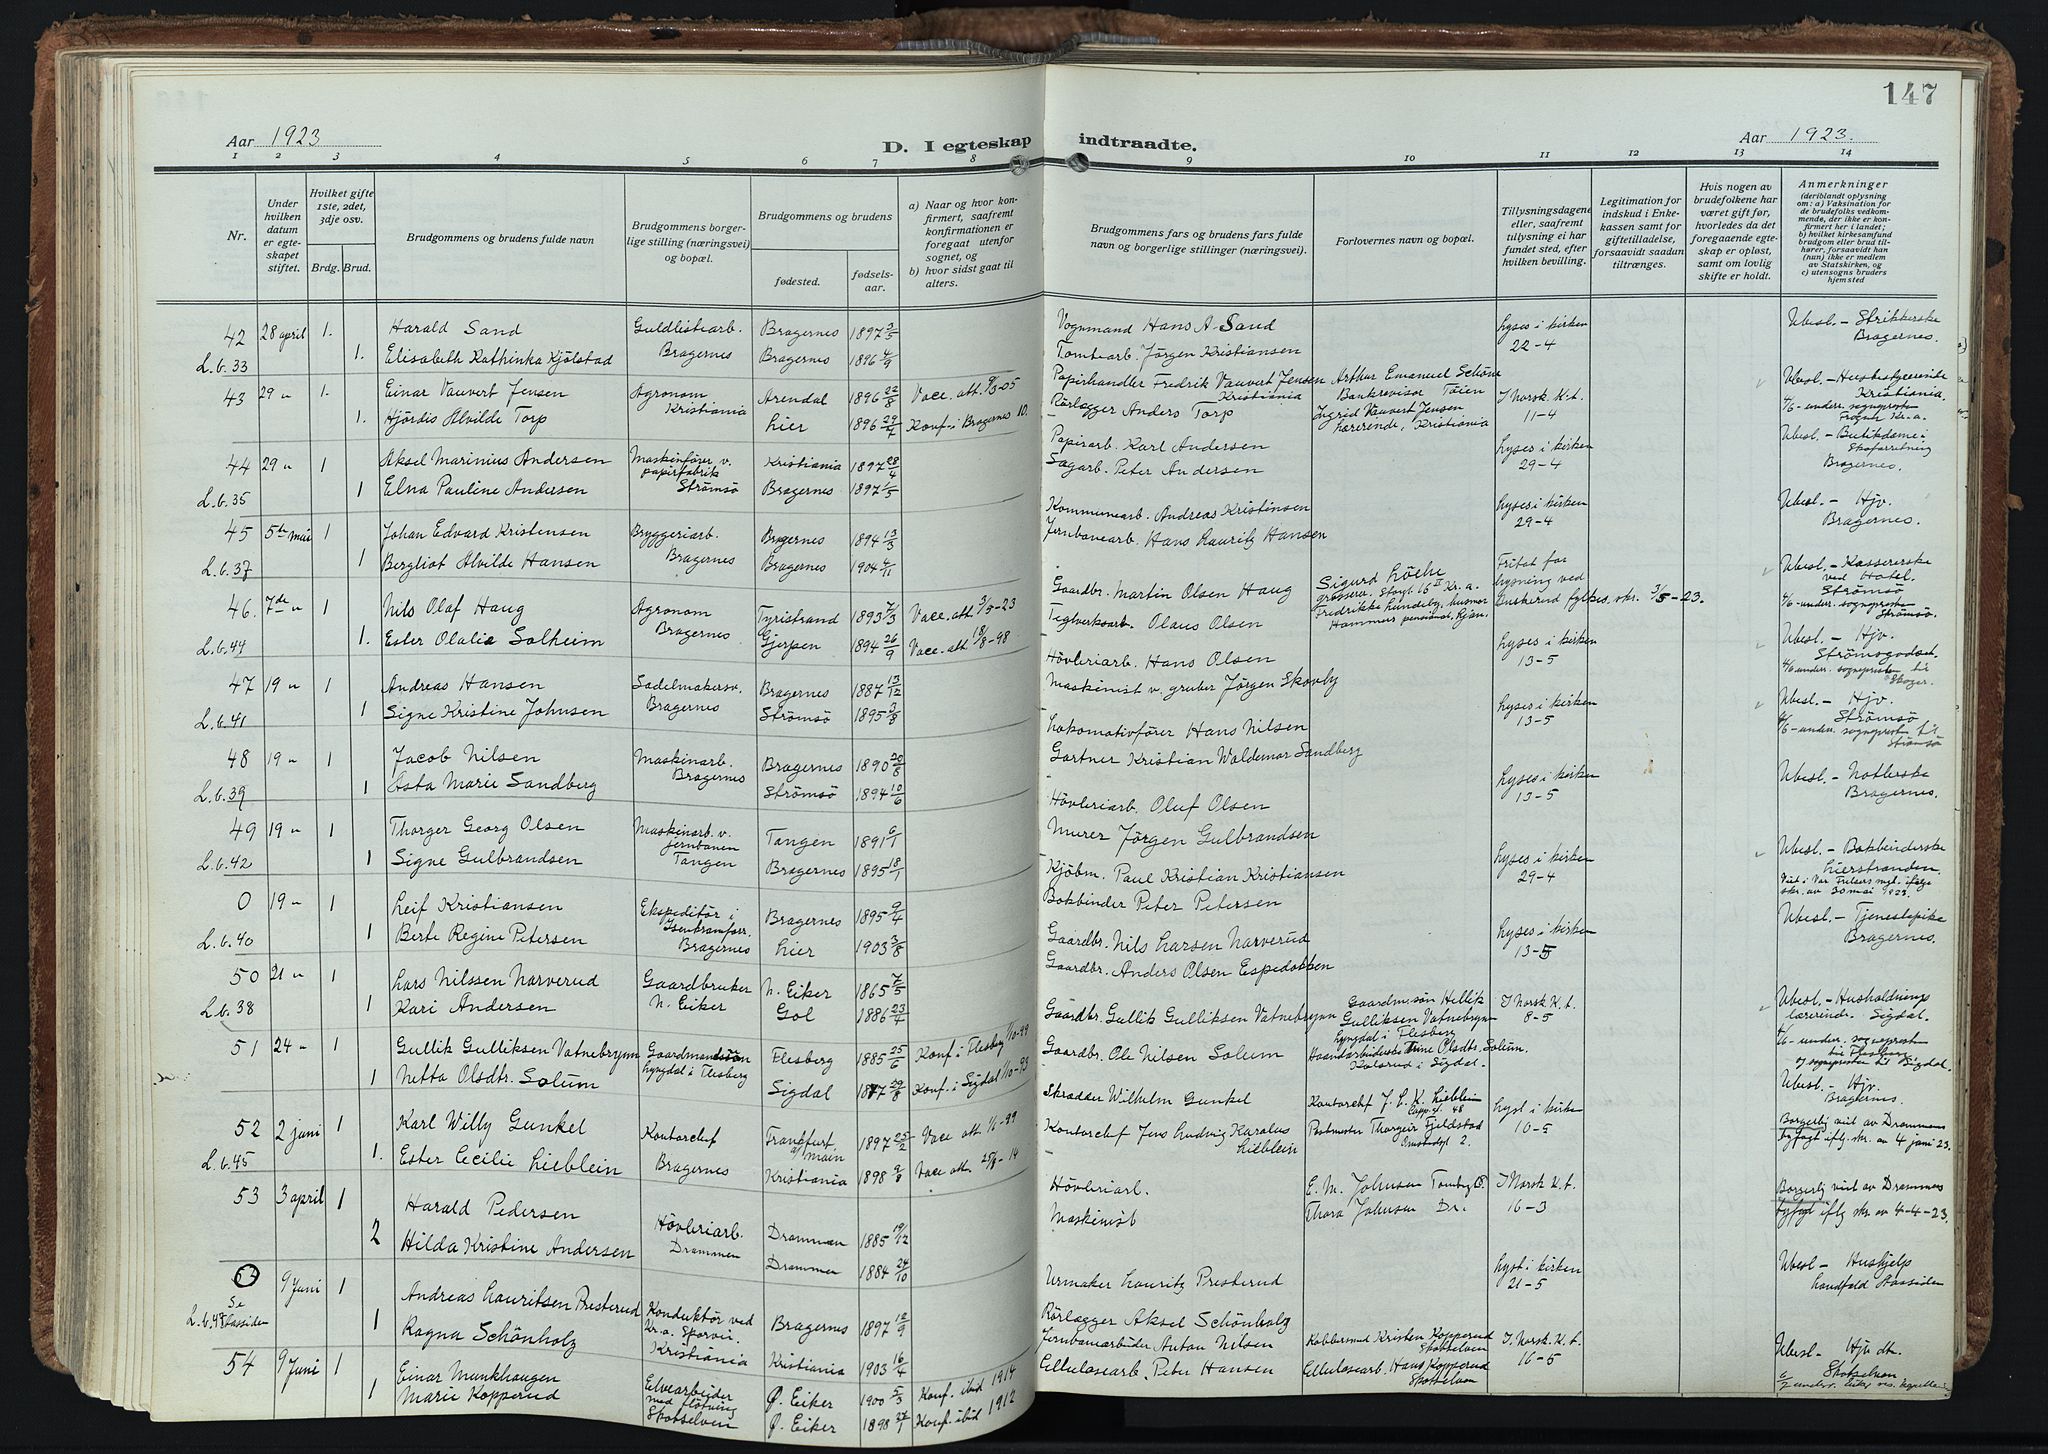 147
Aar 1923
D. I egteskap indtraadte.
Aar 1923.
1 2 3 4 5 6 7 8 9 10 11 12 13 14
Nr.
Under hvilken datum er egteskapet stiftet.
Hvilket gifte 1ste, 2det, 3dje osv.
Brdg. Brud.
Brudgommens og brudens fulde navn
Brudgommens borgerlige stilling (næringsvei) og bopæl.
Brudgommens og brudens
fødested.
fødselsaar.
a) Naar og hvor konfirmert, saafremt konfirmationen er foregaat utenfor sognet, og
b) hvor sidst gaat til alters.
Brudgommens fars og brudens fars fulde navn og borgerlige stillinger (næringsvei).
Forlovernes navn og bopæl.
Tillysningsdagene eller, saafremt tillysning ei har fundet sted, efter hvilken bevilling.
Legitimation for indskud i Enkekassen samt for giftetilladelse, forsaavidt saadan tiltrænges.
Hvis nogen av brudefolkene har været gift før, hvorledes da det foregaaende egteskap er opløst, samt om lovlig skifte er holdt.
Anmerkninger (deriblandt oplysning om: a) Vaksination for de brudefolks vedkommende, der ikke er konfirmert her i landet; b) hvilket kirkesamfund brudgom eller brud tilhører, forsaavidt han (hun) ikke er medlem av Statskirken, og c) utensogns bruders hjemsted
42 28 april 1. Harald Sand Guldlistearb. Bragernes 1897 3/5 Vognmand Hans A. Sand Lyses i kirken Ubesl. – Strikkerske
L.b. 33 1. Elisabeth Kathinka Kjölstad Bragernes Bragernes 1896 4/9 Tomtearb. Jörgen Kristiansen 22-4 Bragernes.
43 29 " 1. Einar Vauvert Jensen Agronom Arendal 1896 22/8 Vacc. att. Papirhandler Fredrik Vauvert Jensen Kristiania Arthur Emanuel Schöne Bankrevisor Töien I Norsk K.t. Ubesl. – Husbestyrerinde Kristiania.
1. Hjördis Alvilde Torp Kristiania Lier 1896 Konf. i Bragernes 10. Rörlegger Anders Torp Ingrid Vauvert Jensen lærerinde, Kristiania 11-4
44 29 " 1 Aksel Marinius Andersen Maskinförer v. papirfabrik Kristiania 1897 28/4 Papirarb. Karl Andersen Lyses i kirken Ubesl. –
L.b. 35 1 Elna Pauline Andersen Strömsö Bragernes 1897 1/5 Sagarb. Peter Andersen 29-4 Bragernes.
45 5te mai 1 Johan Edvard Kristensen Bryggeriarb. Bragernes 1894 13/3 Kommunearb. Andreas Kristinsen Lyses i kirken Ubesl. – Hjv.
L.b. 37 1 Bergliot Alvilde Hansen Bragernes Bragernes 1904 4/11 Jernbanearb. Hans Lauritz Hansen 29-4 Bragernes.
46. 7de " 1 Nils Olaf Haug Agronom Tyristrand 1893 7/3 Vacc. att. 3/5-23 Gaardbr. Martin Olsen Haug Sigurd Löche grosserer, Kr.a. Fritat for lysning ved Buskerud fylkes skr. 3/5-23. Ubesl. – Kassererske ved Hotel. Strömsö
L.b. 44 1. Ester Olalie Solheim Bragernes Gjerpen 1894 26/9 Vacc. att. 18/8-98 Teglverksarb. Olaus Olsen
47 19 " 1 Andreas Hansen Sadelmakersv. Bragernes 1887 13/12 Hövleriarb. Hans Olsen Lyses i kirken Ubesl. – Hjv. Strömsgodset.
L.b. 41 1 Signe Kristine Johnsen Bragernes Strömsö 1895 3/8 Maskinist v. gruber Jörgen Skovby 13-5
48 19 " 1 Jacob Nilsen Maskinarb. Bragernes 1890 20/8 Lokomotivförer Hans Nilsen Lyses i kirken Ubesl. – Hjv. Strömsö
L.b. 39 1 Asta Marie Sandberg Bragernes Strömsö 1894 10/6 Gartner Kristian Waldemar Sandberg 13-5
49 19 " 1 Thorger Georg Olsen Maskinarb. v. jernbanen Tangen 1891 6/1 Hövleriarb. Oluf Olsen Lyses i kirken Ubesl. –
L.b. 42 1 Signe Gulbrandsen Tangen Bragernes 1895 18/1 Murer Jörgen Gulbrandsen 13-5 Bragernes.
0 19 " 1 Leif Kristiansen Ekspeditör i Isenkramforr. Bragernes 1895 9/4 Kjöbm. Paul Kristian Kristiansen Lyses i kirken Ubesl. – Bokbinderske Lierstranden
L.b. 40 1 Berte Regine Petersen Bragernes Lier 1903 3/8 Bokbinder Peter Petersen 29-4 skr. av 30 mai 1923.
50 21 " 1 Lars Nilssen Narverud Gaardbruker N. Eiker 1865 7/5 Gaardbr. Nils Larsen Narverud Lyses i kirken Ubesl. – Tjenestepike
L.b. 38 1 Kari Andersen N. Eiker Gol 1886 23/4 Gaardbr. Anders Olsen Espedokken 13-5 Bragernes.
51 24 " 1 Gullik Gulliksen Vatnebrynn Gaardmandssön Flesberg 1885 25/6 Konf. i Flesberg 1/10-99 Gaardbr. Gullik Gulliksen Vatnebrynn Gaardm.sön Hellik Gulliksen Vatnebrynn Lyngdal i Flesberg I Norsk K.t. Ubesl. – Husholdnings lærerinde. Sigdal.
1 Netta Olsdtr. Solum Lyngdal i Flesberg Sigdal 1877 29/8 Konf. i Sigdal 1/10-93 Gaardbr. Ole Nilsen Solum Haandarbeiderske Trine Olsdtr. Solum. i Sigdal. 8-5
52 2 juni 1 Karl Willy Gunkel Kontorchef Frankfurt a/main 1897 25/2 Vacc att. 1/6-99 Skrædder Wilhelm Gunkel Kontorchef J. L. K. Lieblein Lyst i kirken Ubesl. – Hjv. Bragernes.
L.b. 45 1. Ester Cecilie Lieblein Bragernes Kristiania 1898 9/8 Vacc att. Kontorchef Jens Ludvig Karolus Lieblein Postmester Thorgeir Fjeldstad 10-5
53 3 april 1 Harald Pedersen Hövleriarb. Drammen 1885 19/12 Hövleriarb. E. M. Johnsen I Norsk K.t. Borgerlig viet av Drammens byfogt iflg. skr. av 4 juni 23.
2 Hilda Kristine Andersen Drammen Drammen 1884 24/10 Maskinist Thora Johnsen Dr. 16-3 Borgerlig viet av Drammens byfogt iflg skr. av 4-4-23.
9 Juni 1 Andreas Lauritsen Presterud Konduktör ved Kr.a. Sporvei. Bragernes 1897 12/9 Urmaker Lauritz Presterud Lyst i kirken Ubesl – Hushjelp
L.b. 48 Se Lassiden 1 Ragna Schönholz Kristiania Kristiania 1903 16/4 Rörlegger Aksel Schönholz 21-5
54 9 Juni 1 Einar Munkhaugen Elvearbeider med flötning Ø. Eiker 1900 5/3 Konf. ibid 1914 Jernbanearbeider Anton Nilsen Kristen Kopperud Skotselven I Norsk K.t. Ubesl – Hjv dt. Skotselven
1 Marie Kopperud Skotselven Ø. Eiker 1898 27/1 Konf. ibid 1912 Cellulosearb. Peter Hansen Cellulosearb. Hans Kopperud Skotselven 16-5